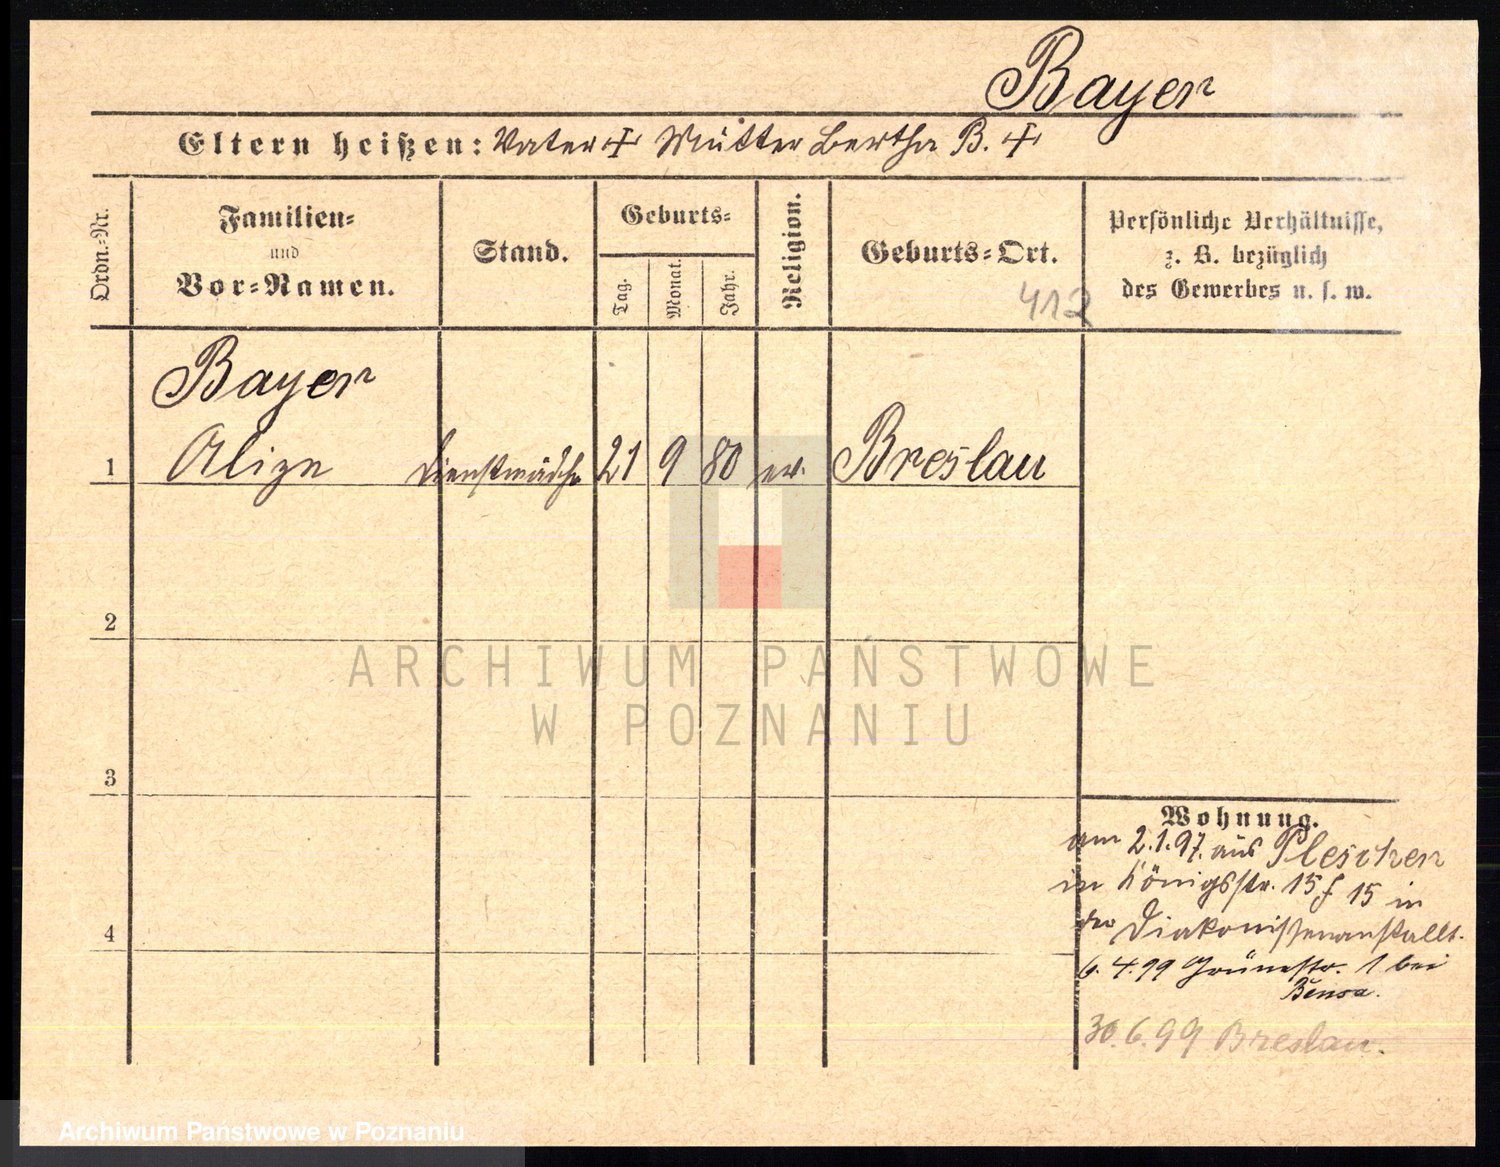 Bayer
Eltern heißen: Vater + Mutter Bertha B. +
Ordn.-Nr.
Familien-
und
Vor-Namen.
Stand.
Geburts-
Tag.
Monat.
Jahr.
Religion.
Geburts-Ort.
412
Persönliche Verhältnisse,
z. B. bezüglich
des Gewerbes u. s. w.
Bayer
1 Alize Dienstmädch 21 9 80 ev. Breslau
2
3
4
ARCHIWUM PAŃSTWOWE
W POZNANIU
Wohnung.
am 2.1.97. aus Pleschen
in Königsstr. 15 15 in
der Diakonissenanstallt.
6. 4. 99 Grünestr. 1 bei
30.6.99 Breslau.
Archiwum Państwowe w Poznaniu